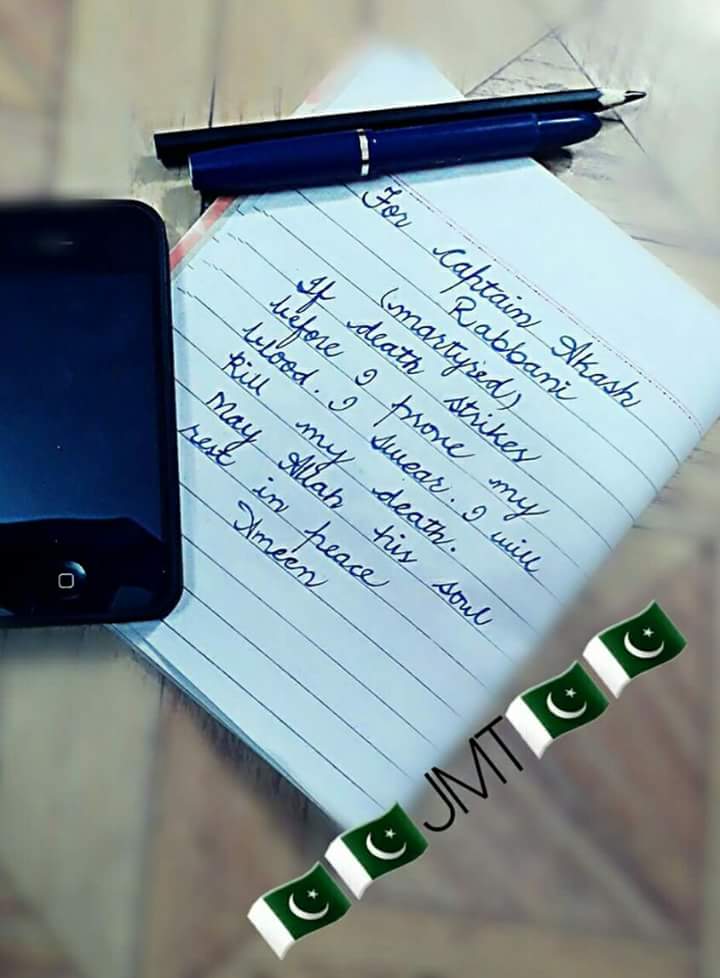 For Captain Akash
Rabbani
(martyred)
If death strikes
before I prove my
blood. I swear. I will
kill my death.
May Allah his soul
rest in peace
Ameen
JMT